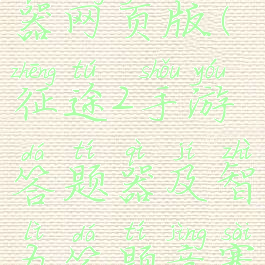 器网页版(
zhēng tú shǒu yóu
征途2手游
dá tí qì jí zhì
答题器及智
lì dá tí jìng sài
力答题竞赛